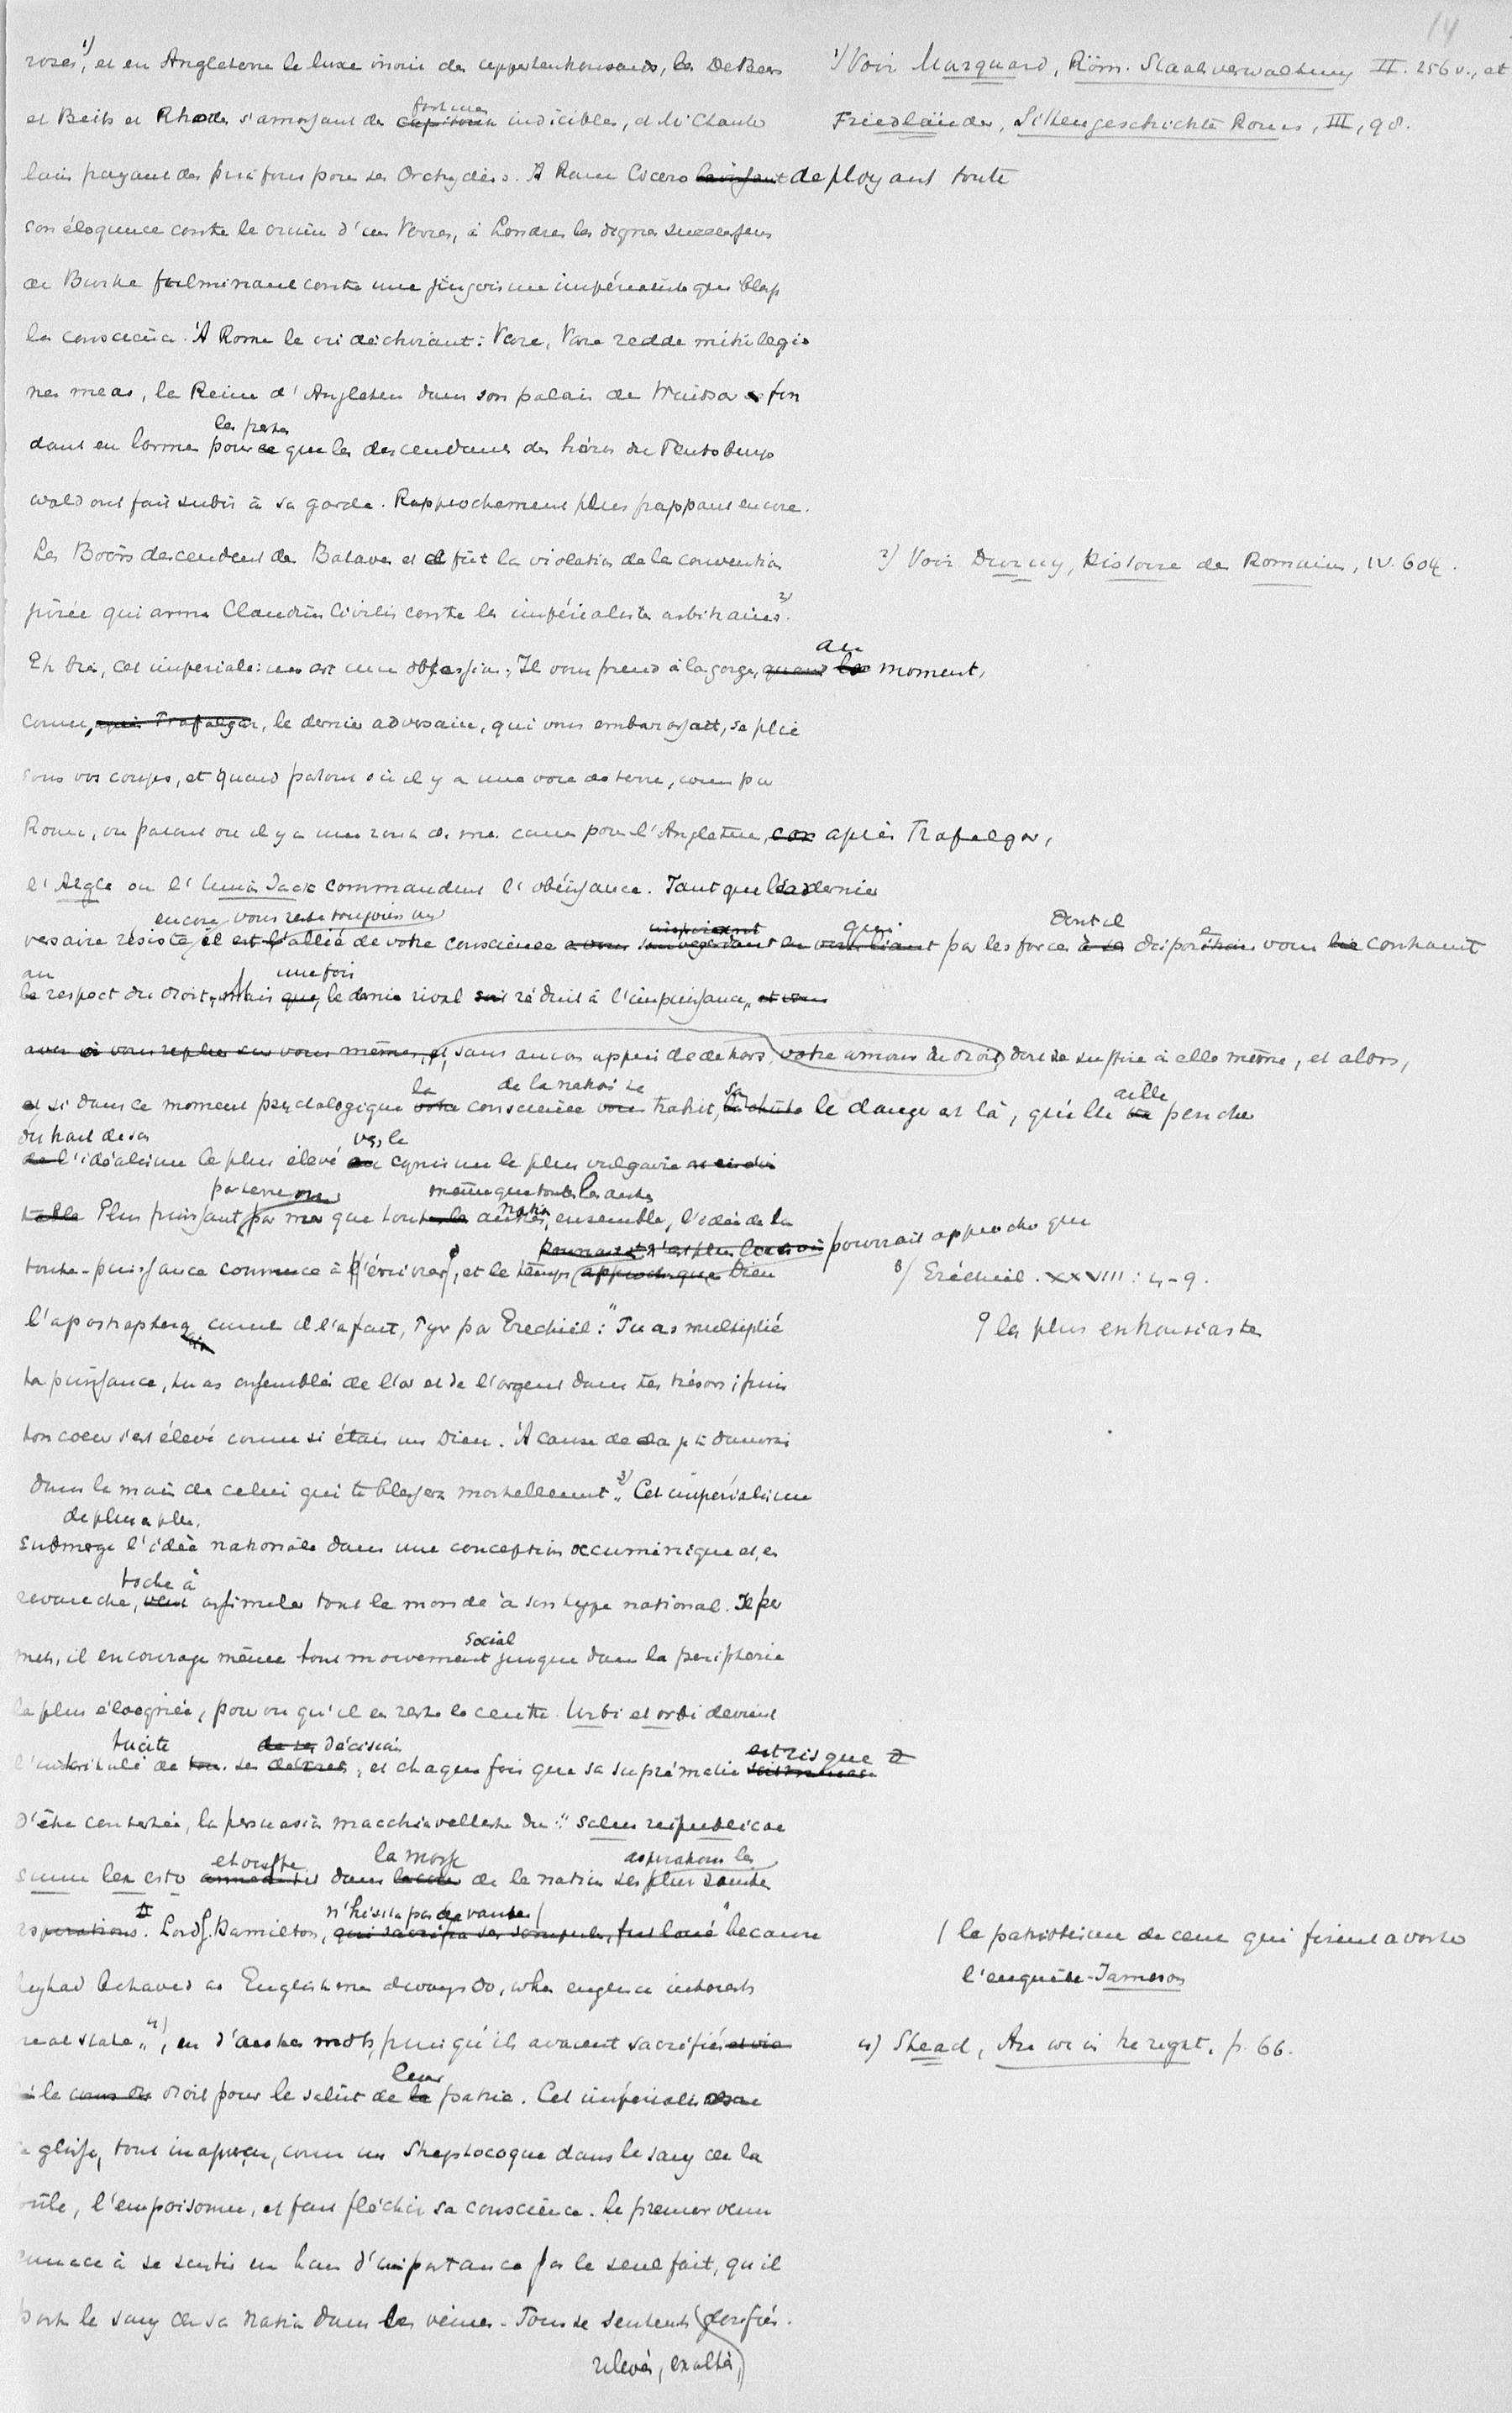 14
roses,¹⁾ et en Angleterre le luxe inouï des uppertenthousands, les De Beers
1) Voir Marquard, Röm. Staatsverwaltung II. 256 v., et
et Beits et Rhodes s'amassant des fortunes indicibles, et Mr Chamber
Friedländer, Sittengeschichte Roms, III, 98.
lain payant des prix fous pour ses Orchydées. A Rome Cicero deployant toute
son éloquence contre le crime d'un Verres, à Londres les dignes successeurs
de Burke fulminant contre une jingoisme impérialiste qui blesse
la conscience. A Rome le cri déchirant: Vare, Vare redde mihi legio
nes meas, la Reine d'Angleterre dans son palais de Windsor fon
dant en larmes pour les pertes que les descendants des héros du Teutoburgs
wald ont fait subir à sa garde. Rapprochement plus frappant encore.
Les Boërs descendent des Bataves et ce fût la violation de la convention
2) Voir Duruy, Histoire des Romains, IV. 604.
jurée qui arma Claudius Civilis contre les impérialistes arbitraires.²⁾
Eh bien, cet imperialisme est une obsession. Il vous prend à la gorge, au moment,
comme, le dernier adversaire, qui vous embarassait, se plie
sous vos coups, et quand partout où il y a une voie de terre, comme pour
Rome, ou partout ou il y a une route de mer comme pour l'Angleterre, après Trafalgar,
l'Aigle ou l'Union Jack commandent l'obéissance. Tant que le dernier ad
encore, vous reste toujours un
versaire résiste allié de votre conscience qui par les forces dont il dispose vous contraint
au respect du droit, mais une fois le dernier rival réduit à l'impuissance,
sans aucun appui de dehors, votre amour du droit doit se suffire à elle même, et alors,
si dans ce moment psychologique la conscience de la nation se trahit, le danger est là, qu'elle aille pencher
du haut de son idéalisme le plus élevé vers le cynisme le plus vulgaire
Plus puissant par terre ou par mer que toutes les autres nations ensemble, l'idée de la
toute-puissance commence à l'énivrer, et le temps pourrait approcher que Dieu
3) Ezéchiel. XXVIII: 4-9.
l'apostrophera comme il l'a fait, Tyr par Ezechiel: "Tu as multiplié
les plus enthousiastes
ta puissance, tu as assemblés de l'or et de l'argent dans tes trésors; puis
ton coeur s'est élevé comme si étais un Dieu. A cause de cela je te donnerai
dans la main de celui qui te blessera mortellement".³⁾ Cet impérialisme
de plus en plus,
submerge l'idée nationale dans une conception occuménique et, en
revanche, tache à assimiler tout le monde à son type national. Il per
met, il encourage même tout mouvement social jusque dans la peripherie
la plus éloignée, pourvu qu'il en reste le centre. Urbi et orbi devient
l'intitulé tacite de ses décisions, et chaque fois que sa suprématie est risque
d'être contestée, la persuasion macchiavelleste du: "Salus reipublicae
suma lex esto étouffe dans la morse de la nation ses aspirations les plus saintes
Lord G. Hamilton, n'hésita pas de vanter "because
le patriotisme de ceux qui firent avorter
l'enquête-Jameson
they had behaved as Englishmen always do, when english interests
4) Stead, Are we in the right, p. 66.
re at stake",⁴⁾ en d'autres mots, puisqu'ils avaient sacrifié
le droit pour le salût de leur patrie. Cet impérialisme
se glisse, tout inaperçu, comme un Streptocoque dans le sang de la
foule, l'empoisonne, et fait fléchir sa conscience. Le premier venu
commence à se sentir un homme d'importance par le seul fait, qu'il
porte le sang de sa nation dans les veines. Tous se sentent glorifiés.
relevés, exaltés,